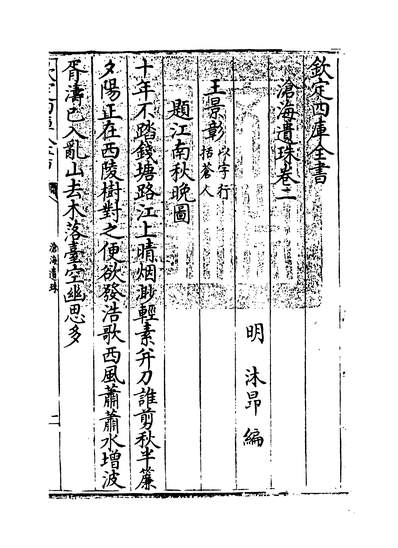 欽定四庫全書
滄海遺珠卷二
明 沐昂 編
王景彰以字行括蒼人
題江南秋晚圖
十年不踏錢塘路江上晴烟渺輕素并刀誰剪秋半簾
夕陽正在西陵樹對之便欲發浩歌西風蕭蕭水增波
胥濤已入亂山去木落臺空幽思多
滄海遺珠
二